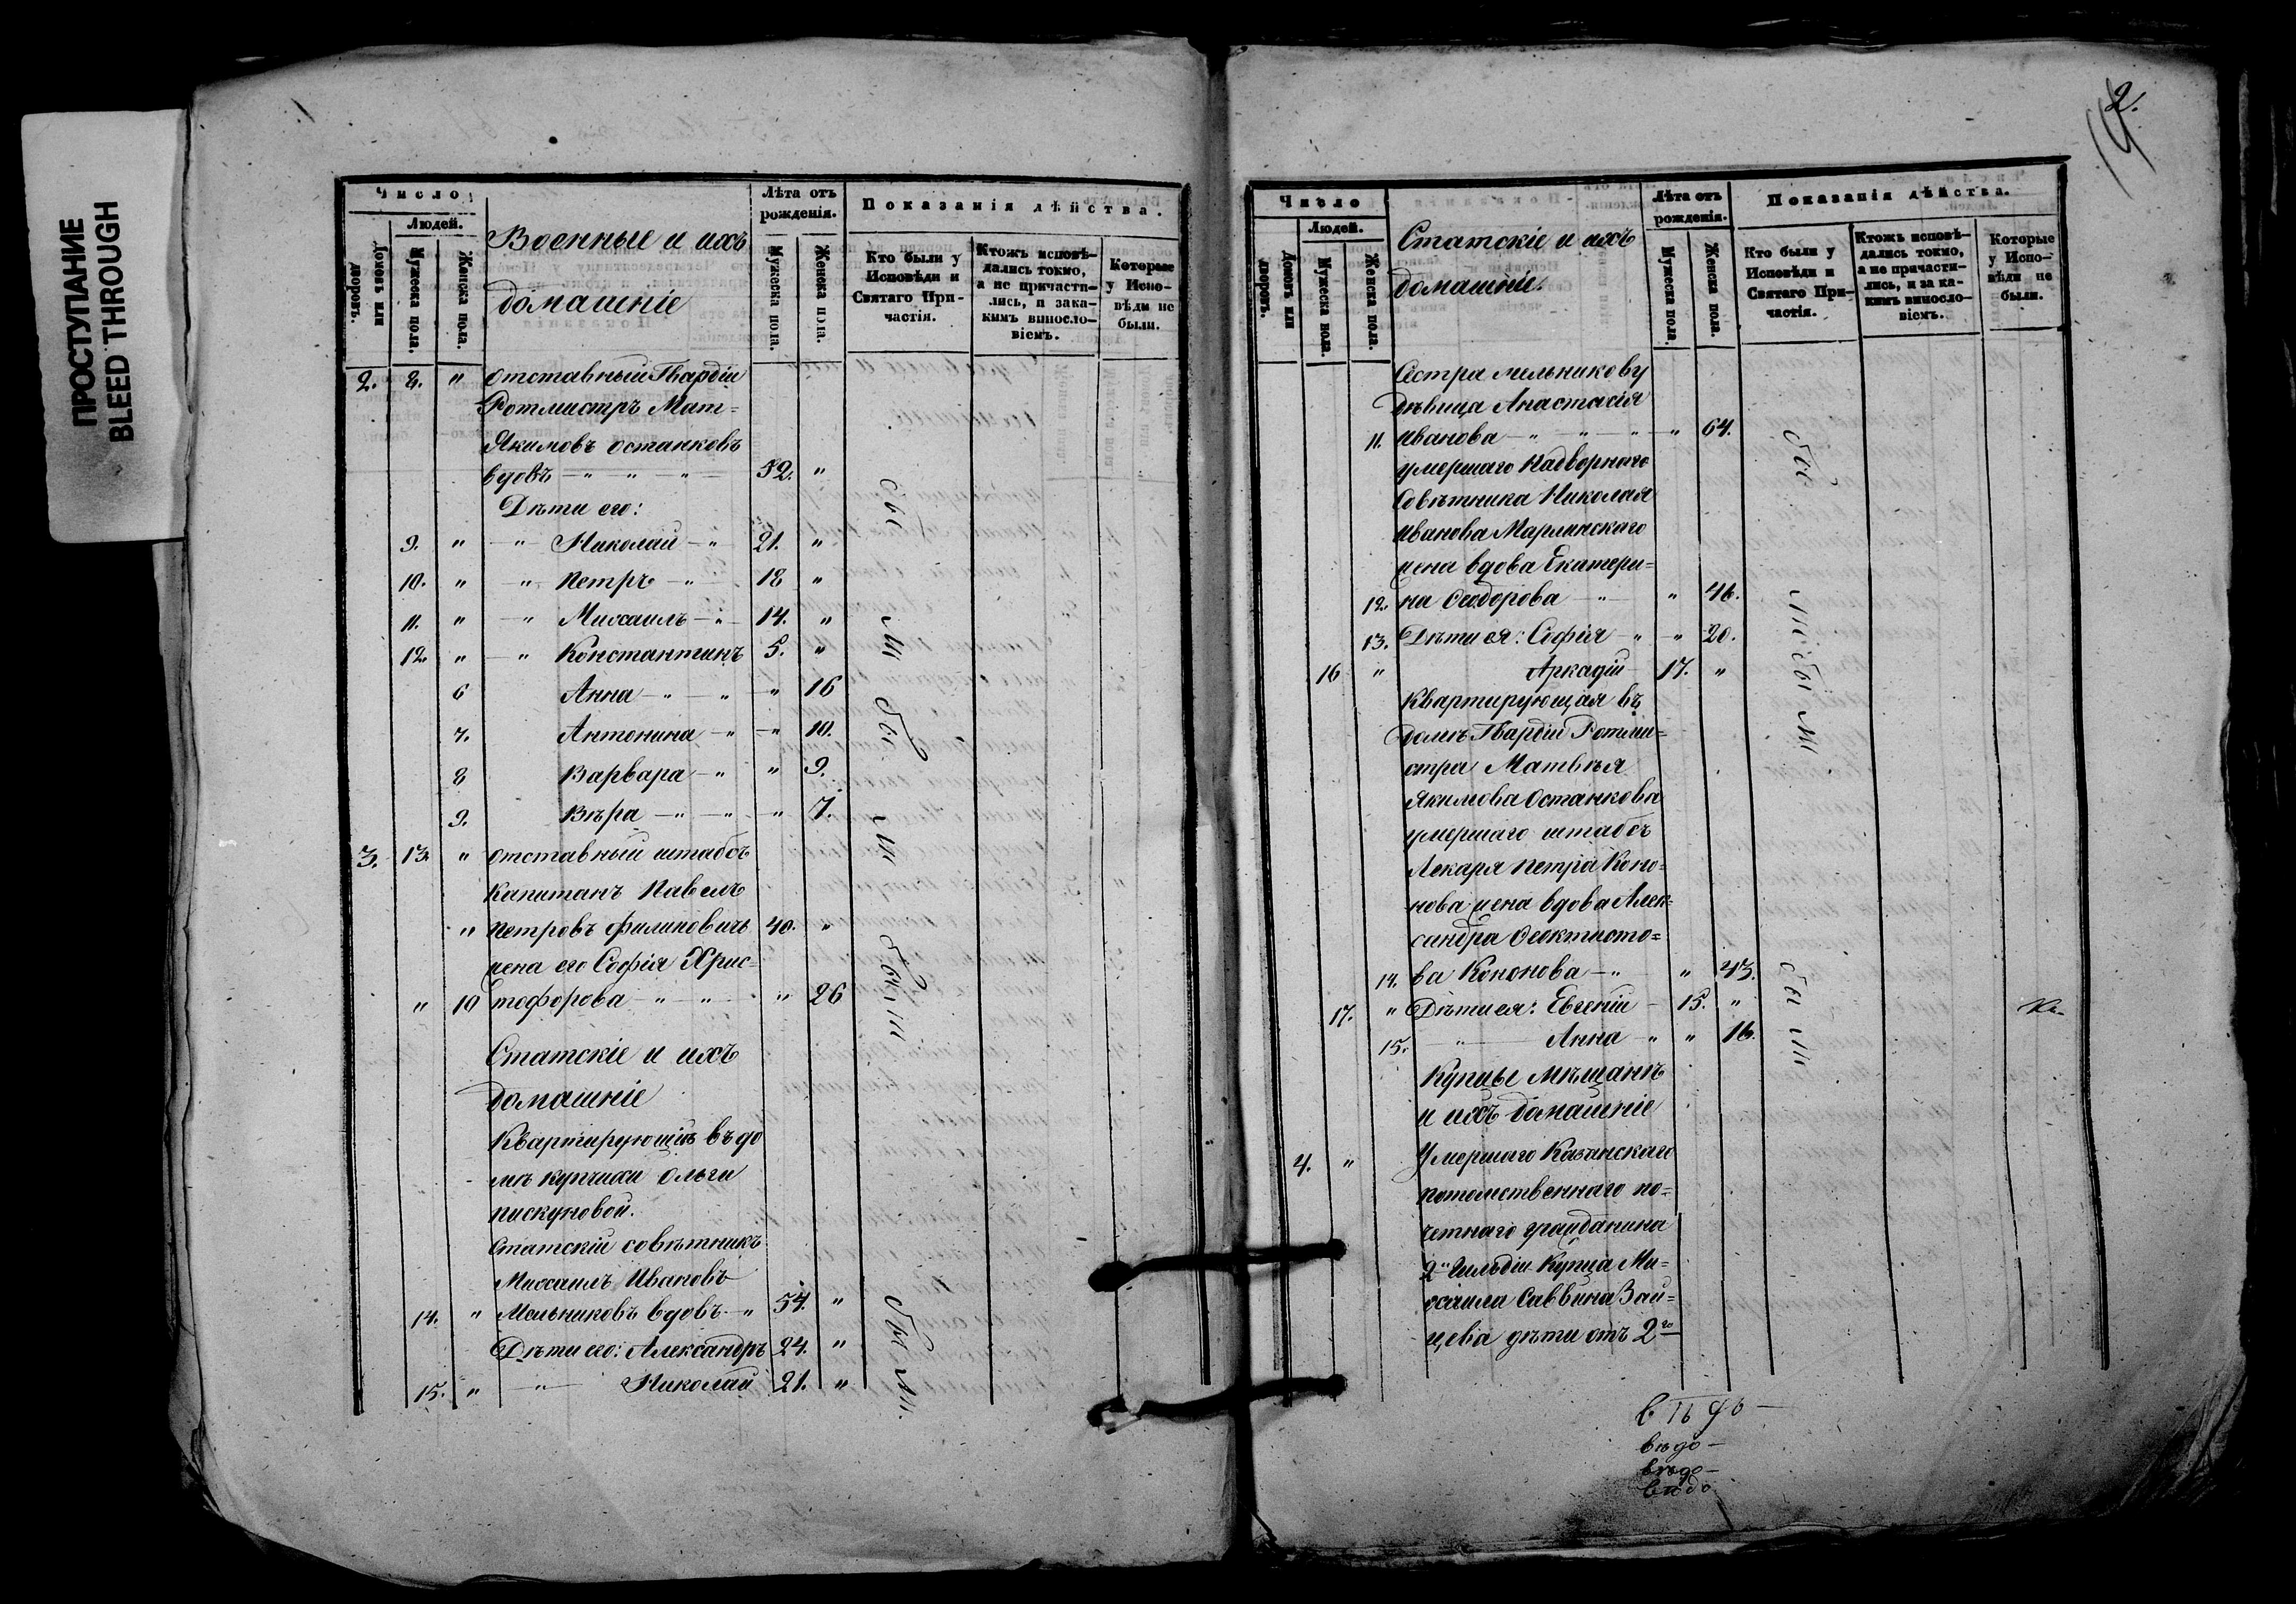 ПРОСТУПАНИЕ
BLEED THROUGH
Число
Людей.
Домовъ или дворовъ.
Мужеска пола.
Женска пола.
Военные и ихъ
домашніе
Лѣта отъ рожденія.
Мужеска пола.
Женска пола.
Показанія дѣйства.
Кто были у Исповѣди и Святаго Причастія.
Ктожъ исповѣдались токмо, а не причастились, и за какимъ винословіемъ.
Которые у Исповѣди не были.
2. 8. " отставный Гвардіи
Ротмистръ Мат=
Якимовъ Останковъ
вдовъ — " — " — " — 52. "
Дѣти его:
9. " — " Николай — " 21. "
10. " — " Петръ — " 18 "
11. " — " Михаилъ — " — 14. "
12. " — " Константинъ 5. "
6 Анна — " — " — " 16
7. Антонина — " — " 10.
8 Варвара — " " 9.
9. Вѣра — " — " — " 7.
3. 13. " отставный штабсъ
Капитанъ Павелъ
" Петровъ Филиповичъ 40. "
жена его Софія Хрис=
" 10 тофорова — " — " — " 26
были
Статскіе и ихъ
домашніе
Квартирующіе въ до
мѣ купчихи Ольги
Пискуновой.
Статскій совѣтникъ
Михаилъ Ивановъ
14. " Мельниковъ вдовъ — " 54. "
Дѣти его: Александръ 24. "
15. " — " — Николай 21. "
были.
2.
Число
Людей.
Домовъ или дворовъ.
Мужеска пола.
Женска пола.
Статскіе и ихъ
домашніе.
Лѣта отъ рожденія.
Мужеска пола.
Женска пола.
Показанія дѣйства.
Кто были у Исповѣди и Святаго Причастія.
Ктожъ исповѣдались токмо, а не причастились, и за какимъ винословіемъ.
Которые у Исповѣди не были.
Сестра мельникову
дѣвица Анастасія
11. Иванова — " — " — " — " 64.
умершаго Надворнаго
Совѣтника Николая
Иванова Марлинскаго
жена вдова Екатери=
12. на Ѳеодорова — " — " 46.
13. Дѣти ея: Софія — " — " 20.
16 " Аркадій 17. "
Квартирующая въ
домѣ Гвардіи Ротми=
стра Матвѣя
Якимова Останкова
умершаго штабсъ
Лекаря Петра Коно=
нова жена вдова Алек=
сандра Ѳеоктисто=
14. ва Кононова — " — " 43.
17. " Дѣти ея: Евгеній — 15. "
15. — " — Анна — " " 16.
были
Купцы мѣщанѣ
и ихъ домашніе
4. " Умершаго Казанскаго
потомственнаго по=
четнаго гражданина
2й Гильдіи Купца Ми=
хаила Саввина Зай=
цева дѣти отъ 2го
вѣдо—
вѣдо—
вѣдо—
вѣдо